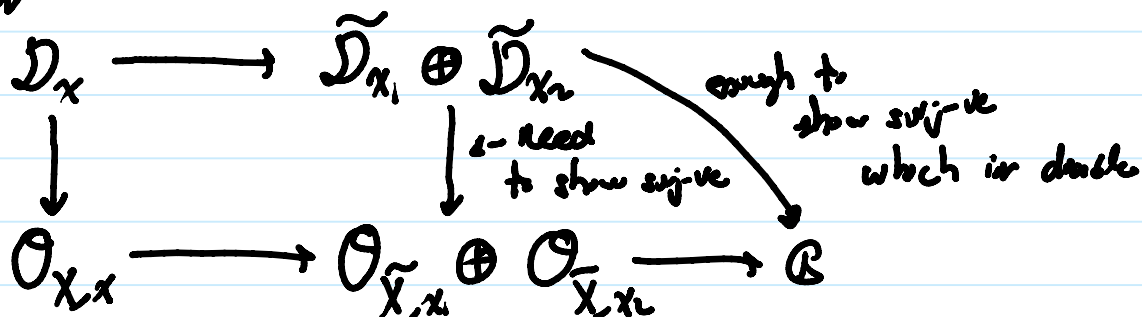 𝒟ₓ → 𝒟̃_{x₁} ⊕ 𝒟̃_{x₂}
enough to
show surj-ve
which is doable
← need
to show surj-ve
𝒪_{X,x} → 𝒪_{X̃,x₁} ⊕ 𝒪_{X̃,x₂} →